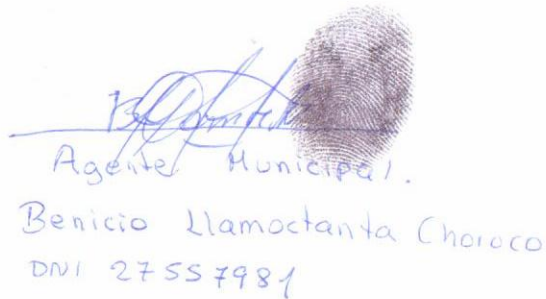 Agente Municipal.
Benicio Llamoctanta Choroco
DNI 27557981